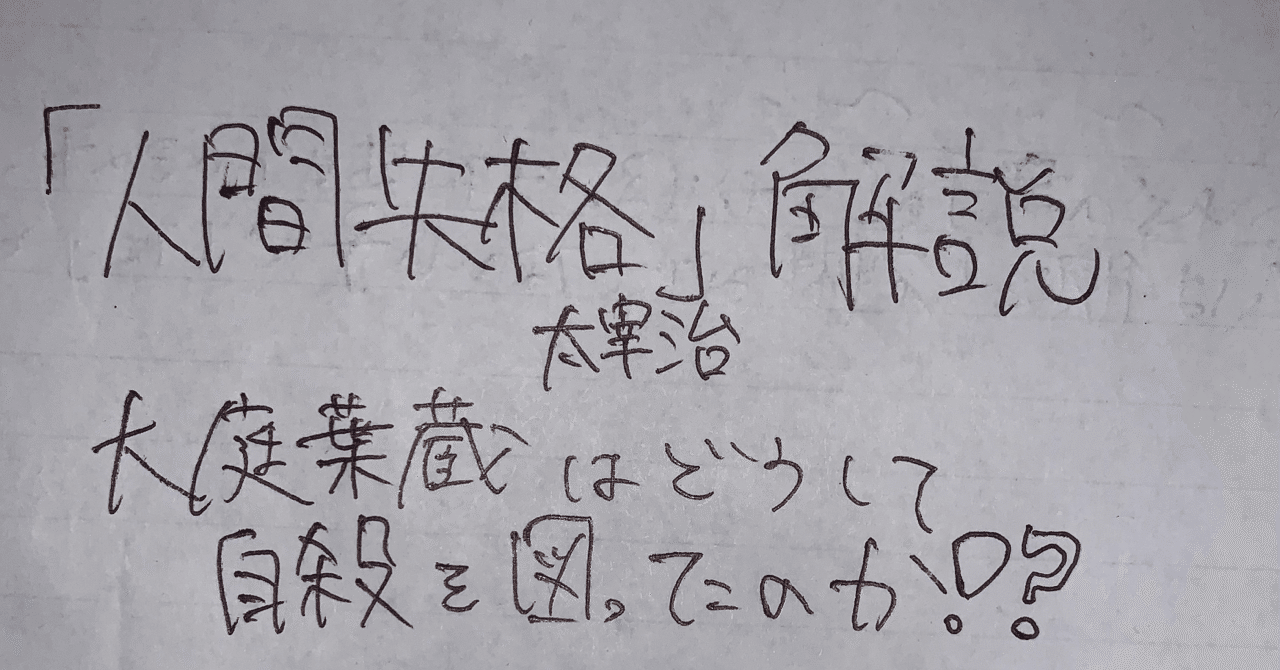 「人間失格」解説
太宰治
大庭葉蔵はどうして
自殺を図ったのか!?